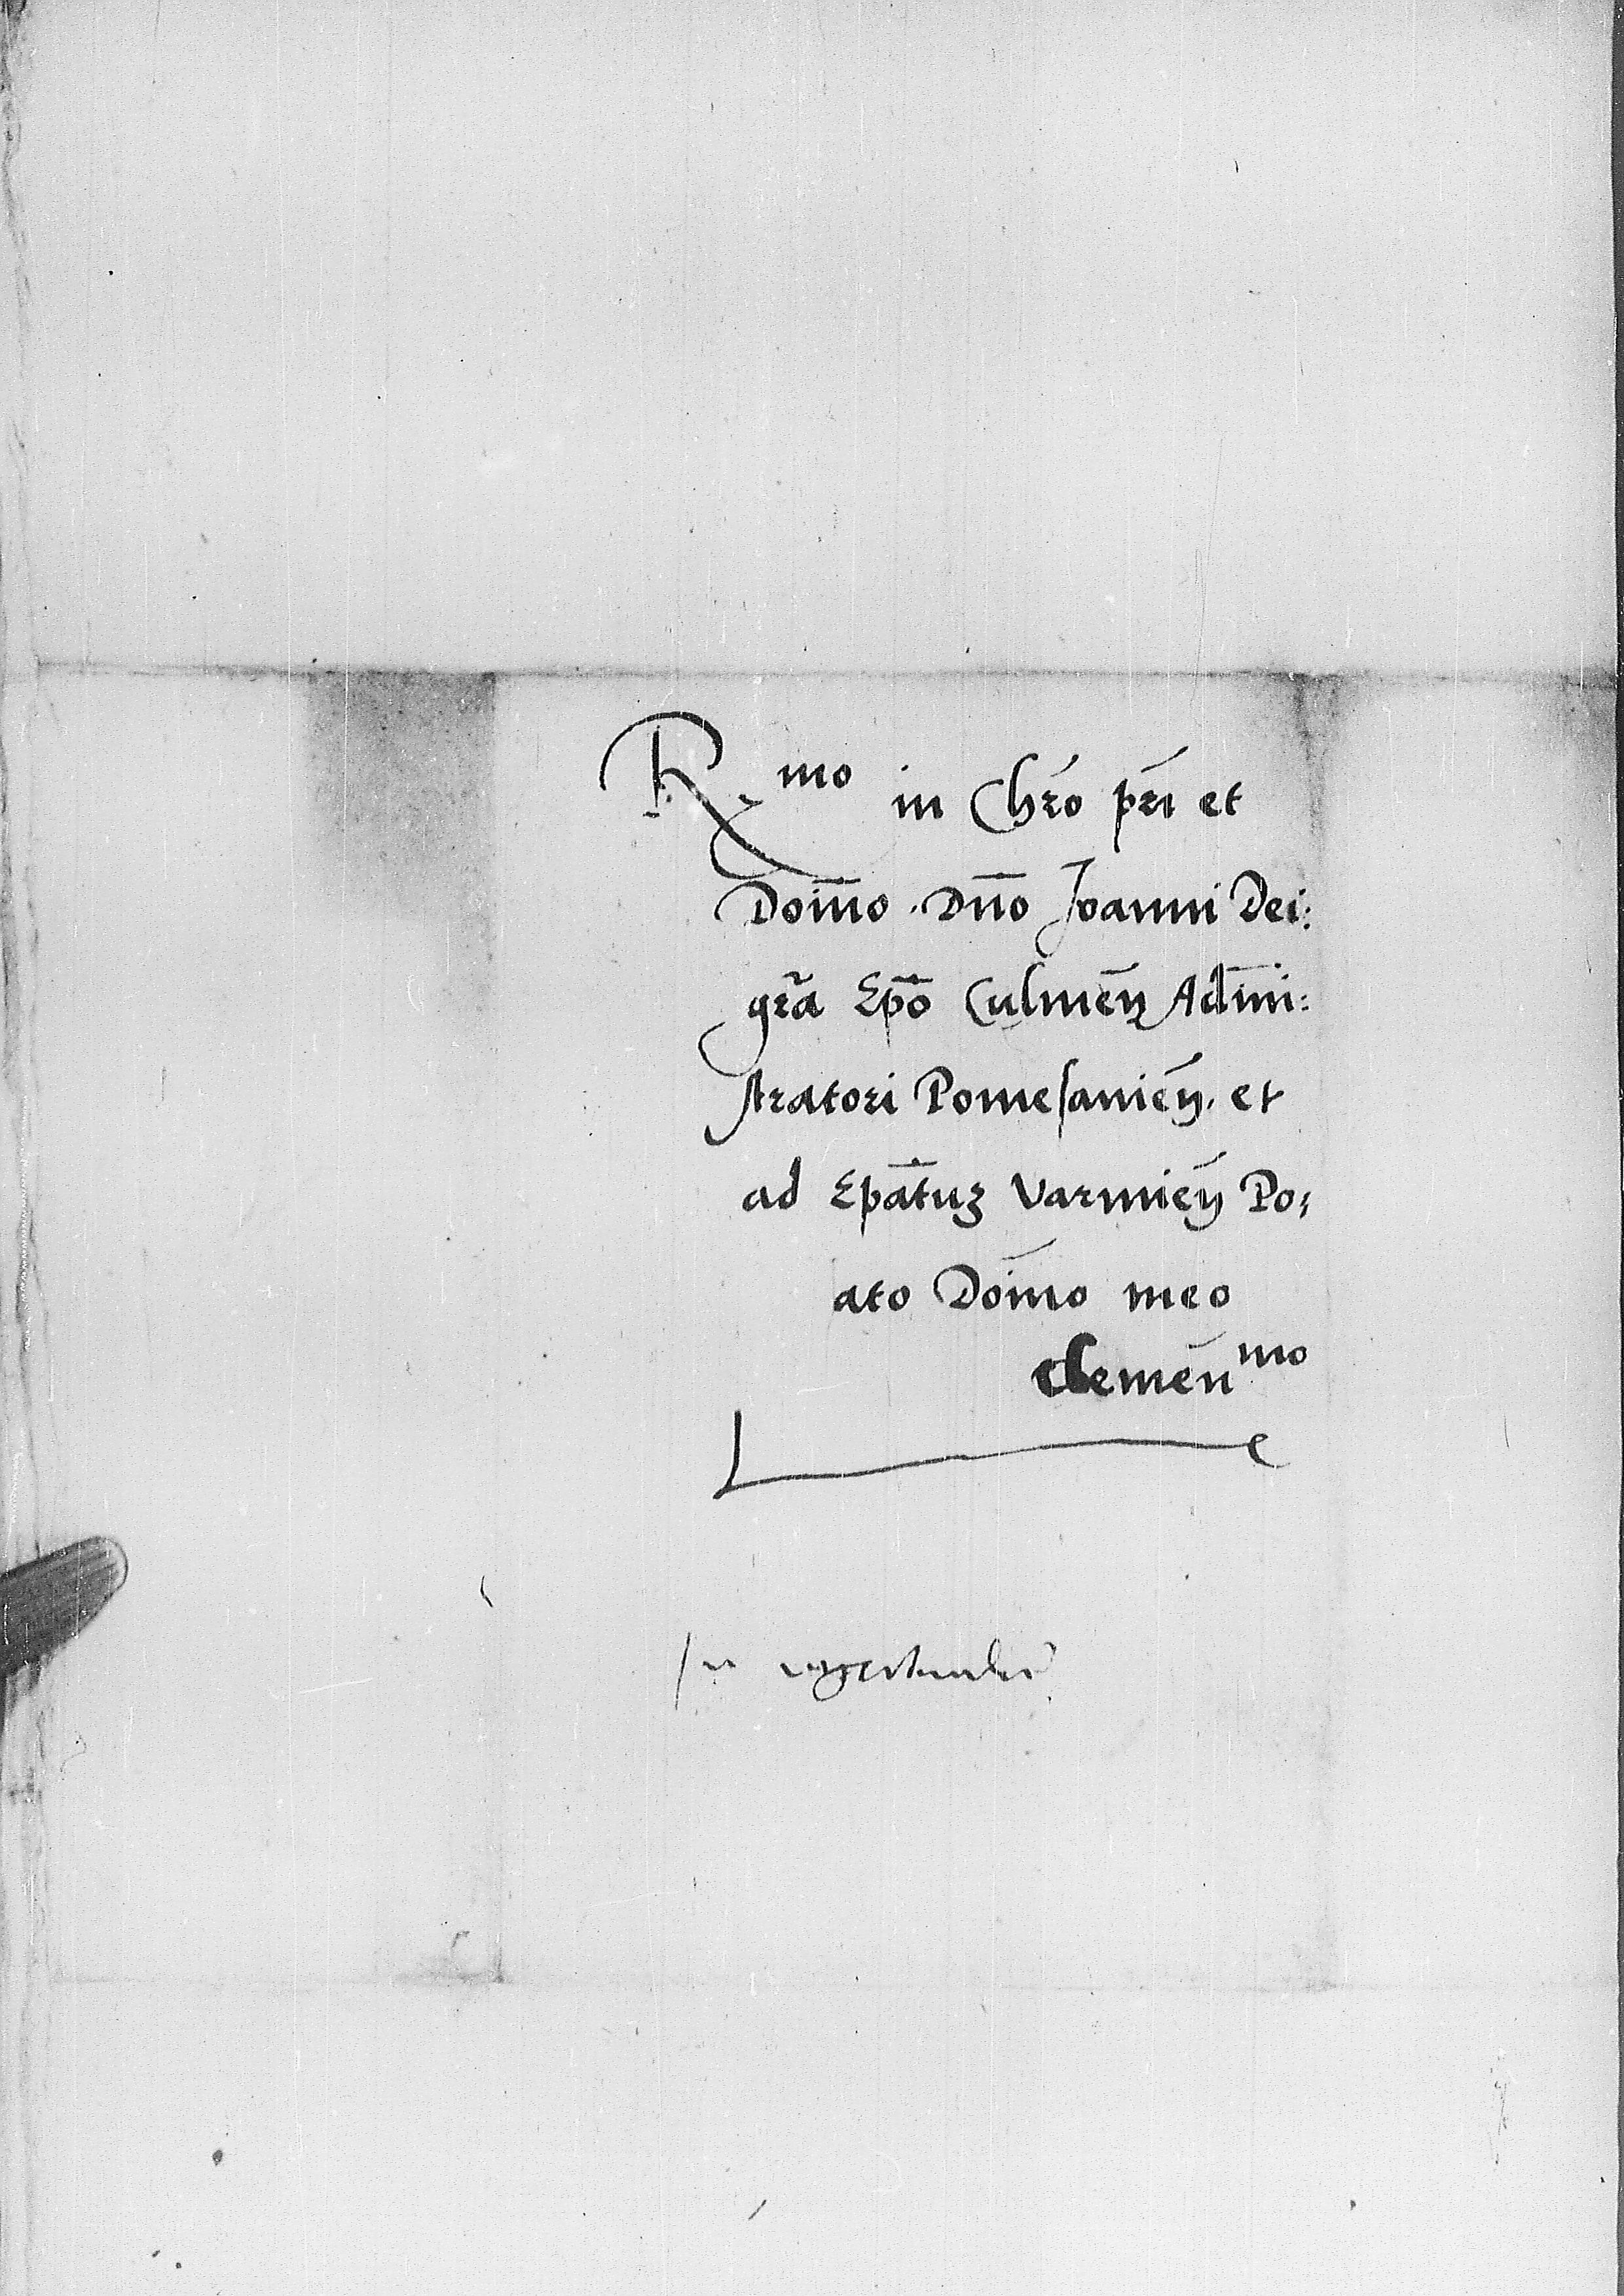 R mo in Chro pri et
Domno . Dno Joanni Dei:
gra Epo Culmen Admi:
stratori Pomesanien. et
ad Epatuz Varmien Po,
ato Domno meo
clemen mo